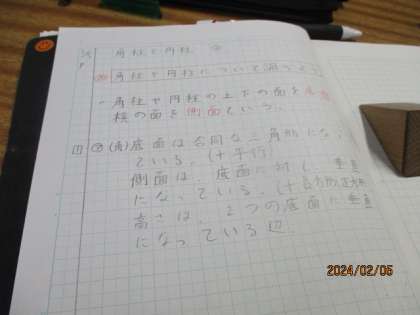 角柱と円柱
角柱や円柱について調べよう
角柱や円柱の上下の面を底面
柱の面を側面という。
(角)底面は合同な三角形になっ
ている。(+平行)
側面は、底面に対し、垂直
になっている。(+長方形,正方形
高さは、2つの底面に垂直
になっている辺
2024/02/06